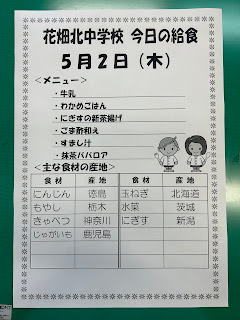 花畑北中学校 今日の給食
5月2日(木)
<メニュー>
・牛乳
・わかめごはん
・にぎすの新茶揚げ
・ごま酢和え
・すまし汁
・抹茶ババロア
<主な食材の産地>
食材 産地 食材 産地
にんじん 徳島 玉ねぎ 北海道
もやし 栃木 水菜 茨城
きゃべつ 神奈川 にぎす 新潟
じゃがいも 鹿児島